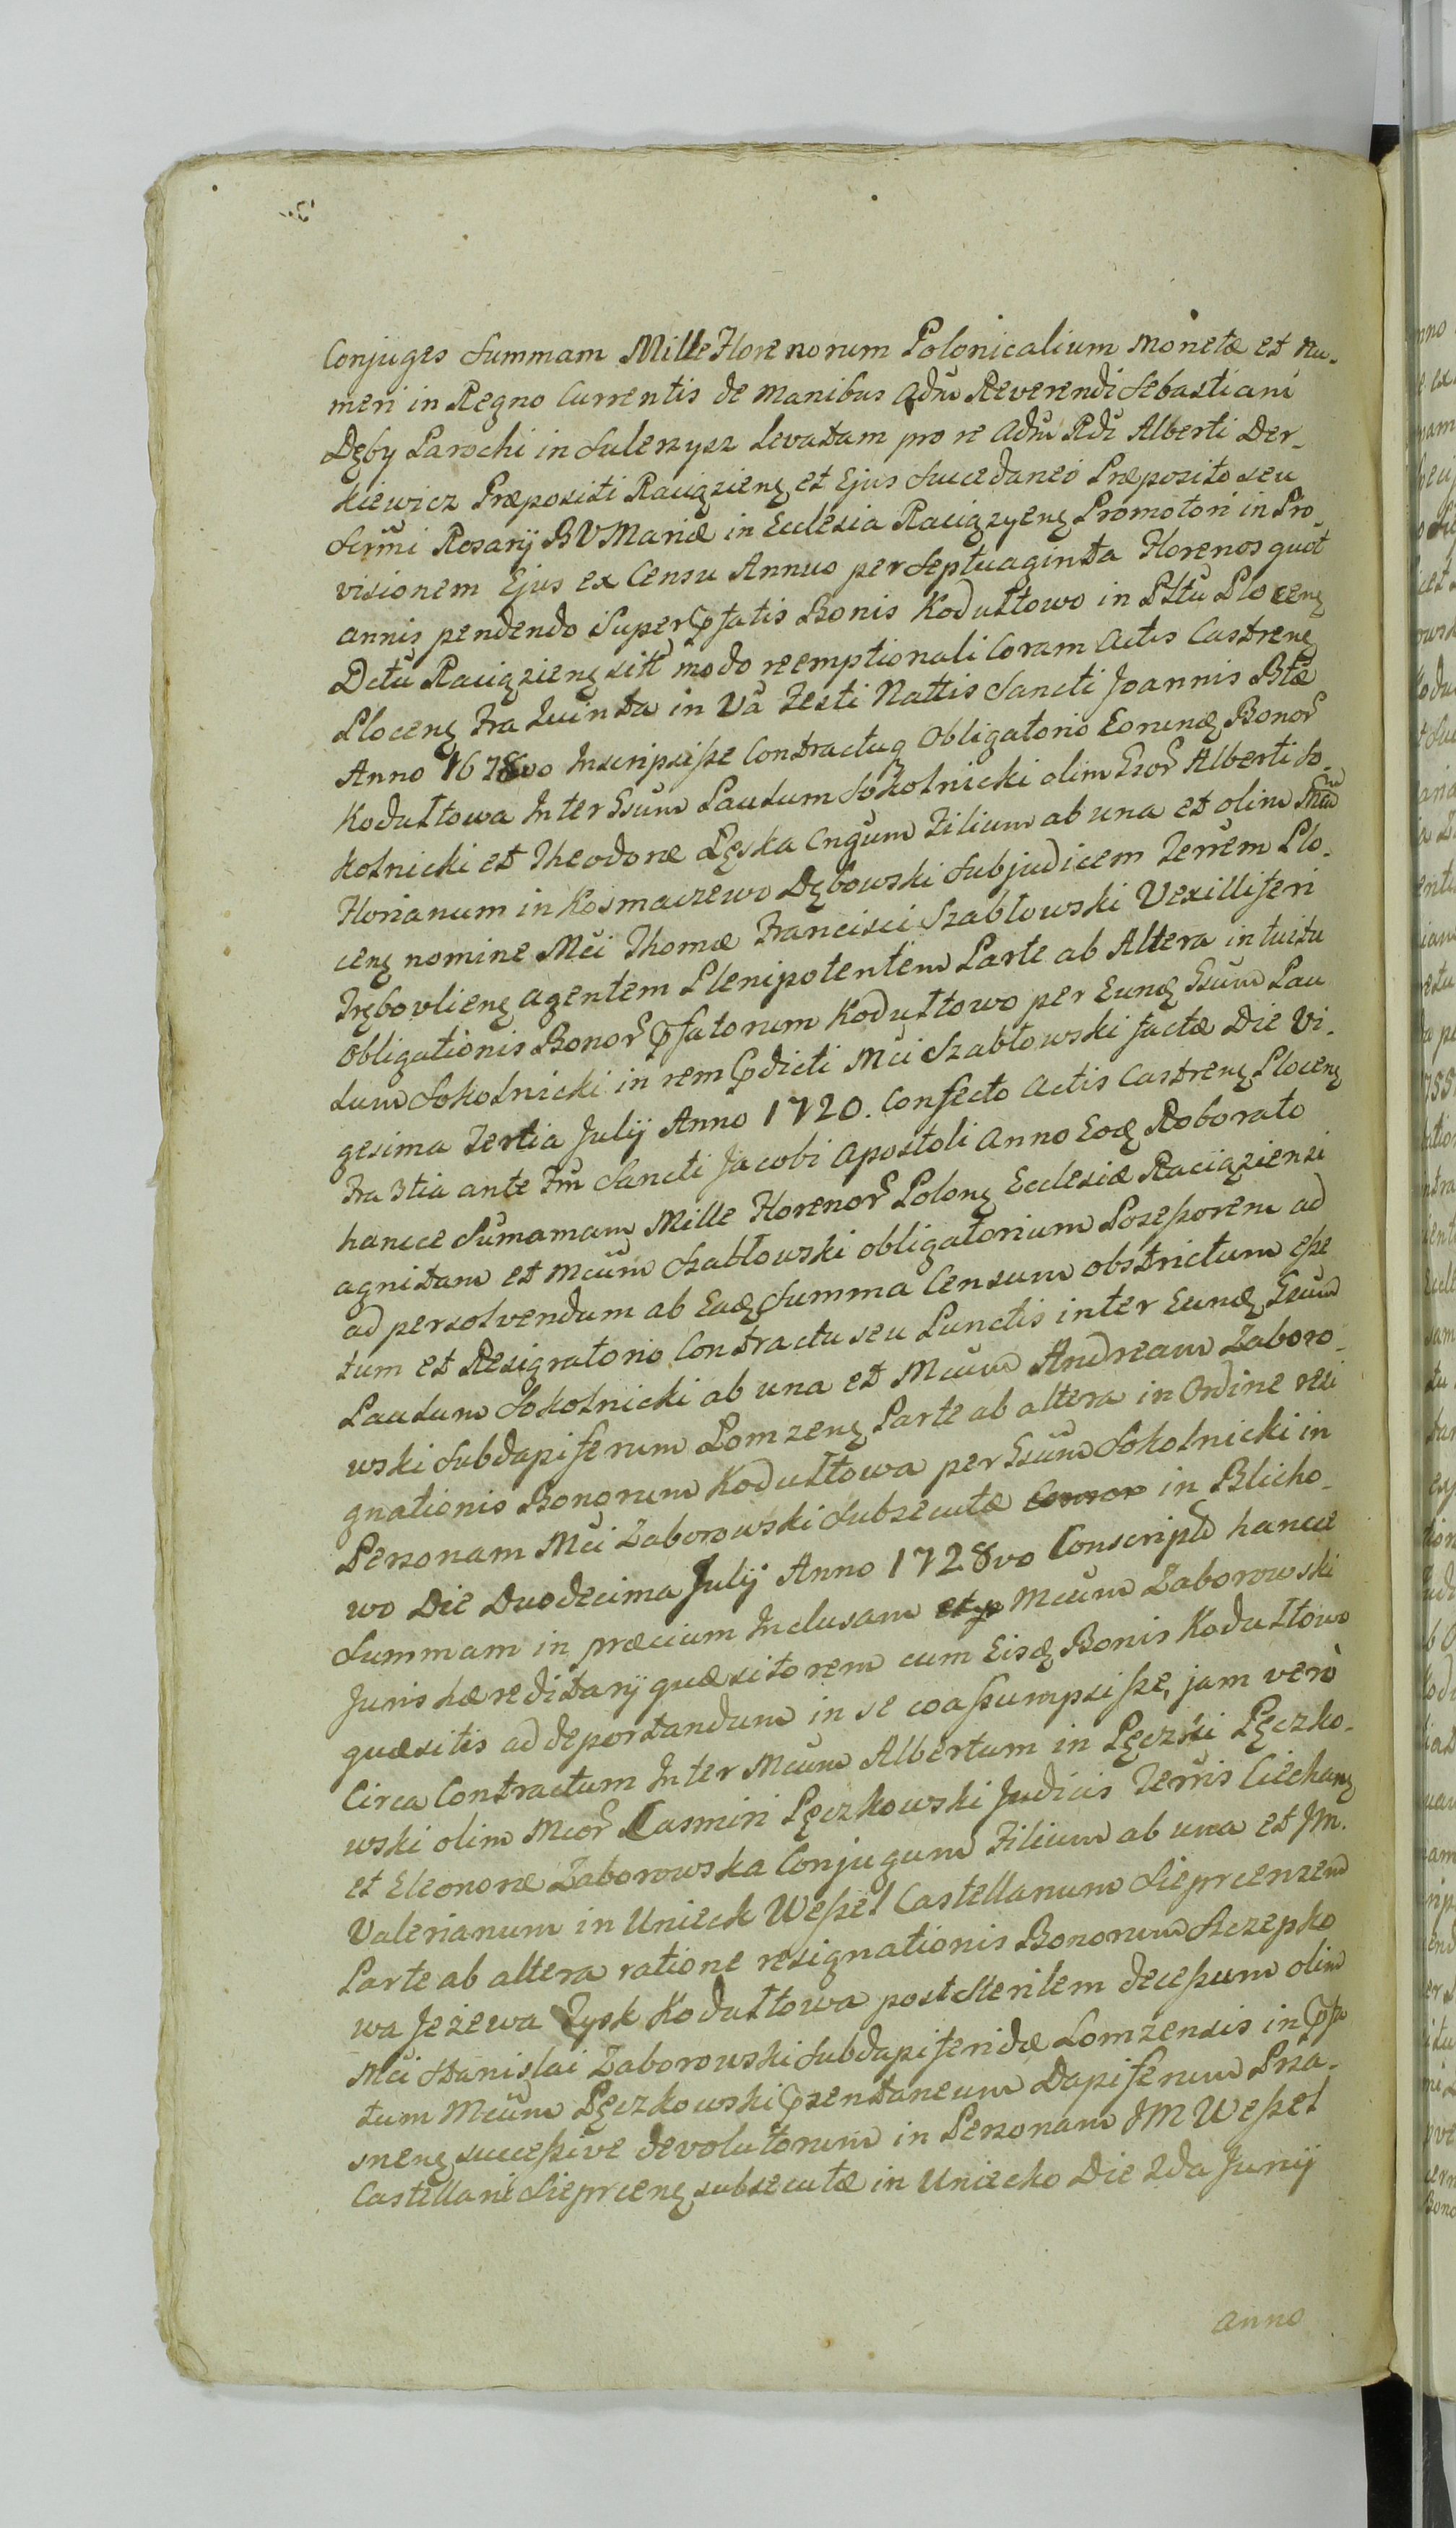 Conjuges Summam Mille Florenorum Polonicalium Monetæ et Nu-
meri in Regno Currentis de Manibus Adm̃ Reverendi Sebastiani
Dęby Parochi in Sulerzysz Levatam pro re Adm̃ Rdi Alberti Der-
kiewicz Præpositi Raciązieng et Ejus Succedaneo Præposito seu
Sc̃rmi Rosarij BVMariæ in Ecclesia Raciązyeng Promotori in Pro-
visionem Ejus ex Censu Annuo per Septuaginta Florenos quot
annis pendendo Super Pfatis Bonis Koduttowo in Pttũ Ploceng
Dctũ Raciązieng sitt̃ modo reemptionali Coram Actis Castreng
Ploceng Fra Quinta in Vã Festi Nattis Sancti Joannis Btæ
Anno 1678vo Inscripsisse Contractuq Obligatorio Eorundæ Bonor̃
Koduttowa Inter Gsum Paulum Sokolnicki olim Gsor̃ Alberti So-
kolnicki et Theodoræ Lęska Cngum Filium ab una et olim
Florianum in Kosmaczewo Dębowski Subjudicem Terrem Plo-
ceng nomine Mci Thomæ Francisci Szabłowski Vexilliferi
Trębovlieng agentem Plenipotentem Parte ab Altera intuitu
Obligationis Bonor̃ Pfatorum Koduttowo per Eundæ Gsum Pau
lum Sokolnicki in rem Pdicti Mci Szabłowski factæ Die Vi-
gesima Tertia Julij Anno 1720. Confecto Actis Castreng Ploceng
Fra 3tia ante Fm Sancti Jacobi Apostoli Anno Eodæ Roborato
hancce Sumamam Mille Florenor̃ Polong Ecclesiæ Raciąziensi
agnitam et Mcum Szabłowski obligatorium Possessorem ad
ad persolvendum ab Eadæ Summa Censum obstrictum esse
tum et Resignatorio Contractu seu Punctis inter Eundæ Gsum
Paulum Sokolnicki ab una et Mcum Andream Zaboro-
wski Subdapiferum Lomzeng Parte ab altera in Ordine resi
gnationis Bonorum Koduttowa per Gsum Sokolnicki in
Personam Mci Zaborowski Subsecutæ in Blicho-
wo Die Duodecima Julij Anno 1728vo Conscripto hancce
Summam in præcium Inclusam Mcum Zaborowski
Juris hæreditarij quæsitorem cum Eisdæ Bonis Koduttowo
quæsitis ad deportandum in se coassumpsisse, jam verò
Circa Contractum Inter Mcum Albertum in Pęczki Pęczko-
wski olim Mcor̃ Casmiri Pęczkowski Judicis Terris Ciechang
et Eleonoræ Zaborowska Conjugum Filium ab una et JM.
Valerianum in Unieck Wessel Castellanum Sieprcensem
Parte ab altera ratione resignationis Bonorum Szczepko
wa Jeżewa Zysk Koduttowa post Sterilem decessum olim
Mci Stanislai Zaborowski Subdapiferidæ Lomzensis in Pfa
tum Mcum Pęczkowski Psentaneum Dapiferum Prza-
sneng successive devolutorum in Personam JM Wessel
Castellani Sieprceng subsecutæ in Uniecko Die 2da Junij
anno